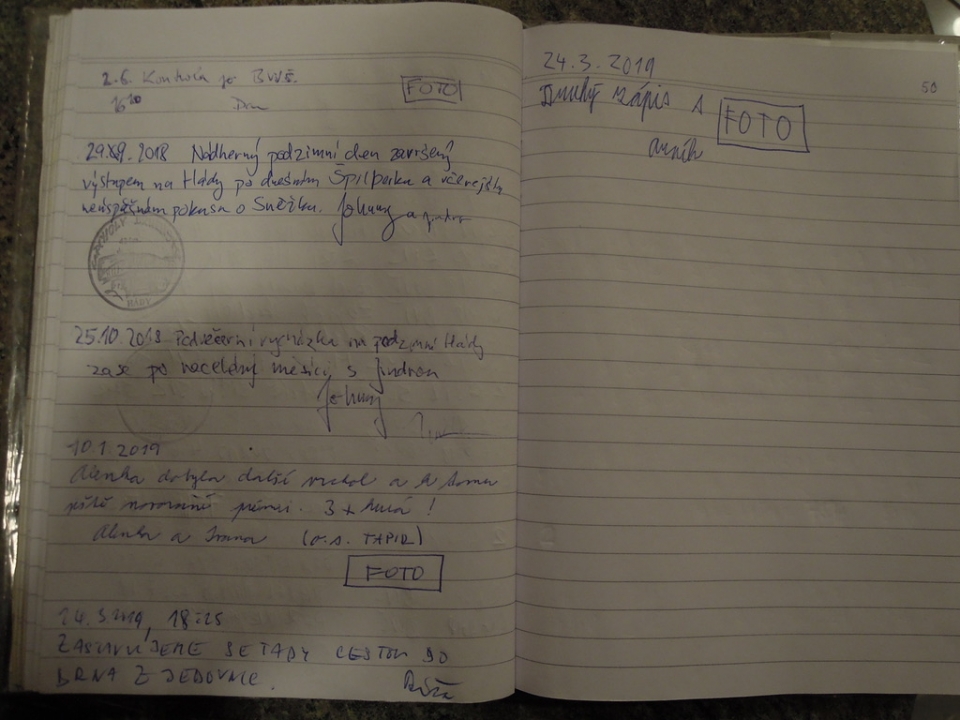 2.6. Kontrola je BVVĚ.
16²⁰
FOTO
29.09.2018 Nádherný podzimní den završený
výstupem na Hády po dnešním Špilberku a včerejším
neúspěšném pokusu o Sněžku. Johuny a Jindra
25.10.2018 Podvečerní vycházka na podzimní Hády
zase po necelém měsíci s Jindrou
Johuny
10.1.2019
Alenka dobyla další vrchol a k tomu
ještě novoroční prémii. 3 + hurá!
Alenka a (o.s. TAPIR)
FOTO
24.3.2019, 18:25
ZASTAVUJEME SE TADY CESTOU DO
BRNA Z JEDOVNIC.
24.3.2019
50
Druhý zápis a
FOTO